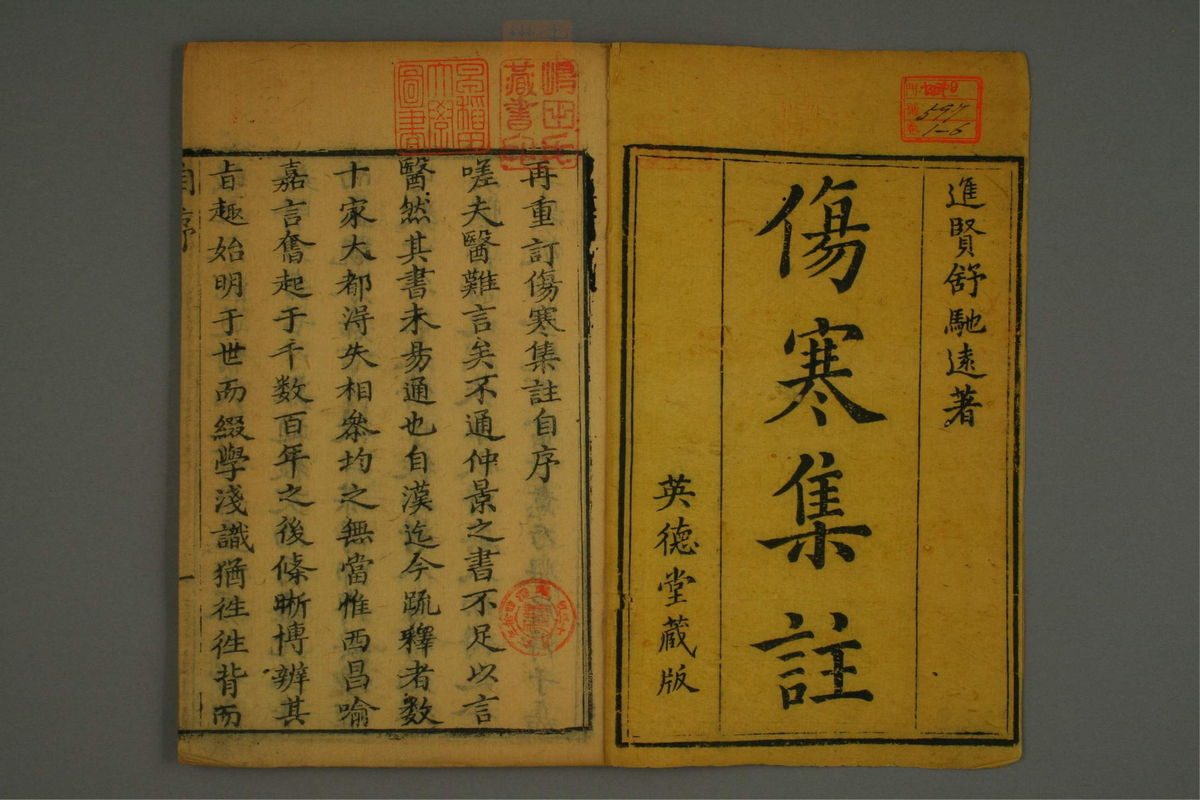 進賢舒馳遠著
傷寒集註
英德堂藏版
597
1-6
嶋田氏
藏書印
早稻田
大學
圖書
再重訂傷寒集註自序
嗟夫醫難言矣不通仲景之書不足以言
醫然其書未易通也自漢迄今疏釋者数
十家大都淂失相叅均之無當惟西昌喻
嘉言奮起于千数百年之後條晰博辨其
㫖趣始明于世而綴學淺識猶徃徃背而
自序
一